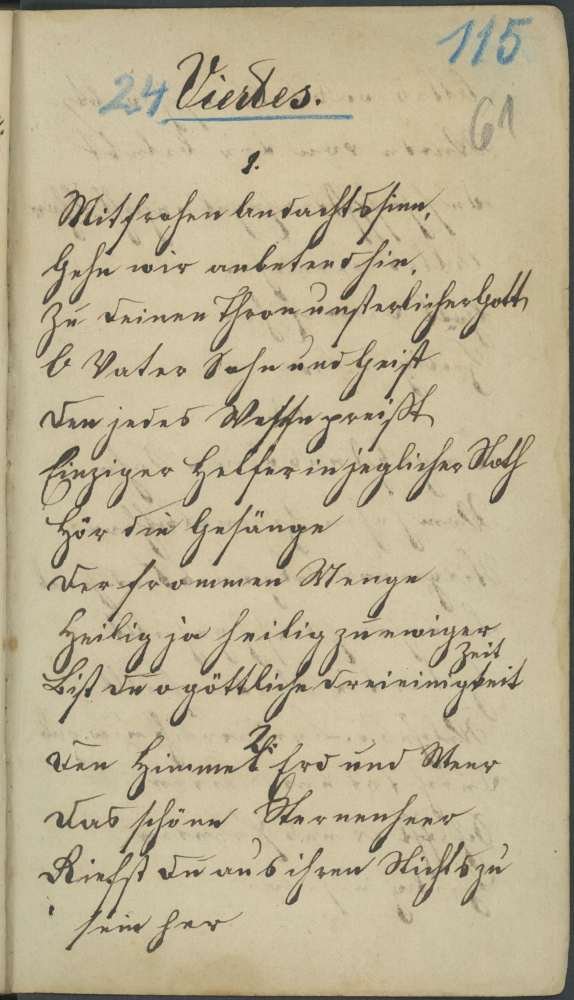 115
24 Viertes.
61
1.
Mit frohen Andachtssinn,
Gehn wir anbetend hin,
Zu deinen Thron unsterblicher Gott
O Vater Sohn und Geist
Den jedes Wessen preißt
Einziger Helfer in jeglicher Noth
Hör die Gesänge
Der frommen Menge
Heilig ja heilig zu ewiger
Zeit
Bist du o göttliche Dreieinigkeit
2.
Den Himmel Erd und Meer
Das schöne Sternenheer
Riefst du aus ihren Nichts zu
sein her